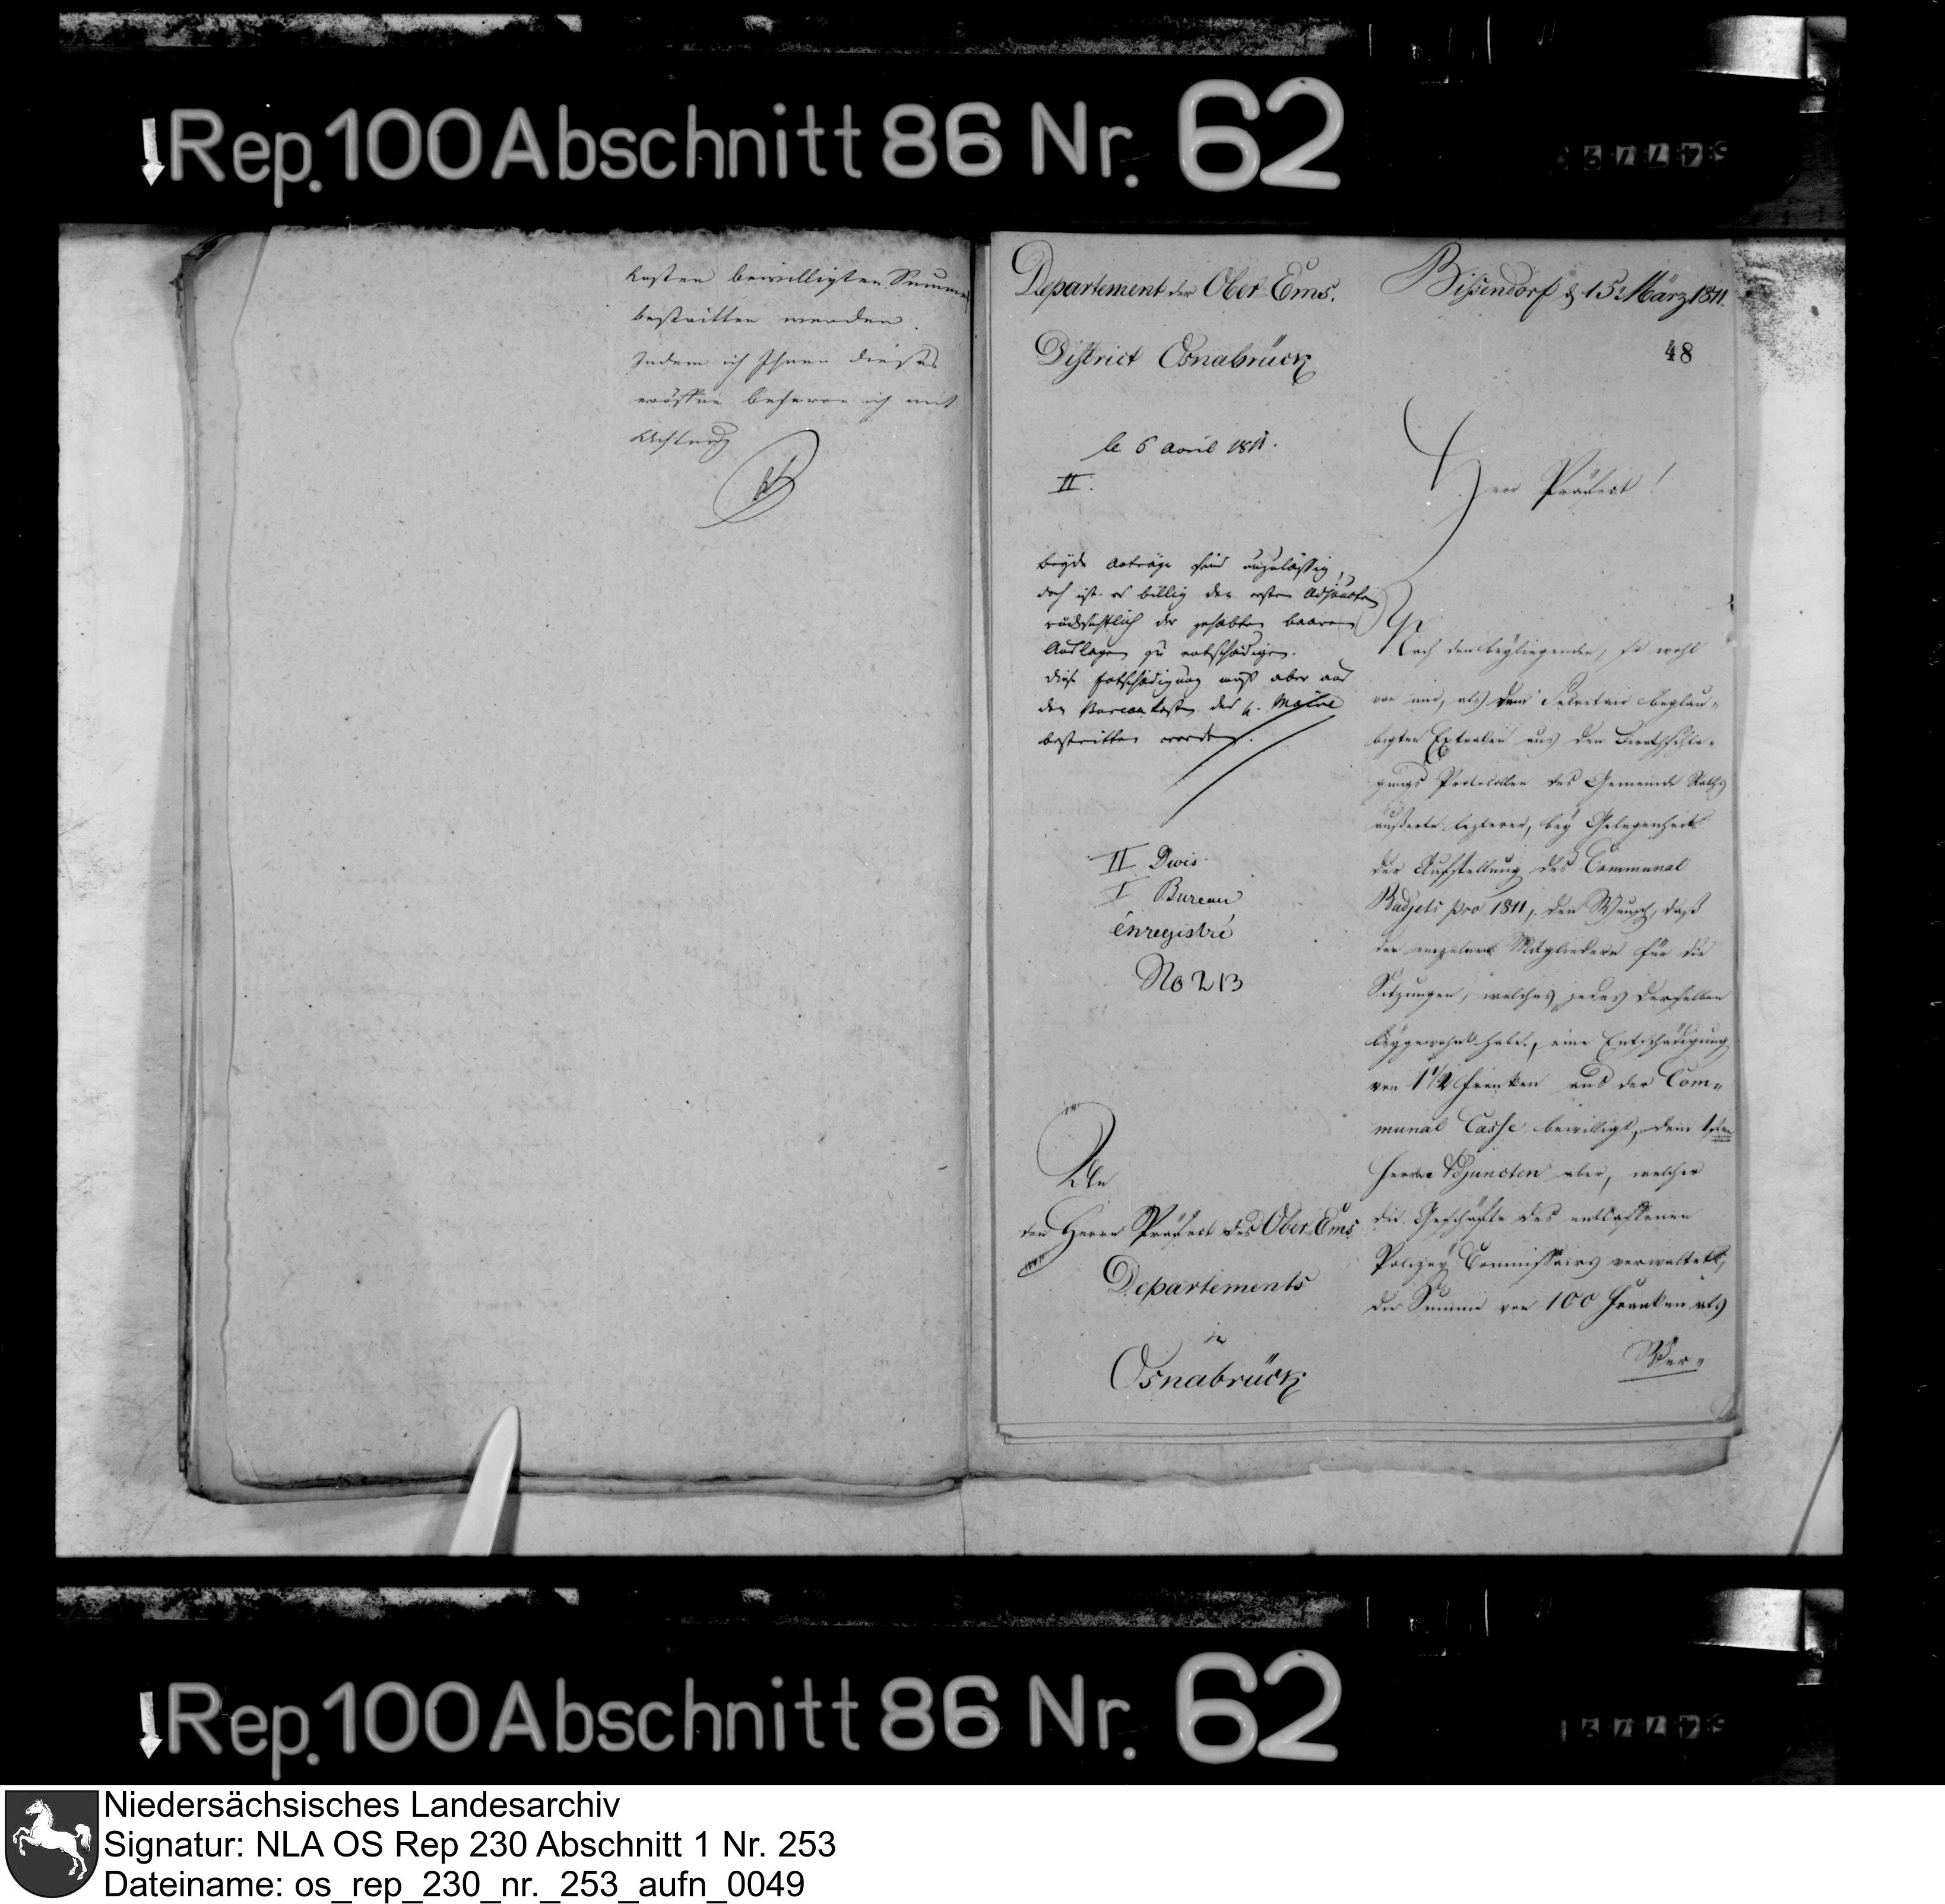 Rep. 100 Abschnitt 86 Nr. 62
Kosten bewilligten Summe
bestritten werden.
Indem ich Ihnen dieses
eröffne beharre ich mit
Achtung
Departement der Ober Ems.
District Osnabrück
Bissendorf d. 15t März 1811.
48
le 6 avril 1811.
II.
Herr Präfect!
beyde Anträge sind unzulässig,
doch ist es billig den ersten Adjuncten
rücksichtlich der gehabten baaren
Auslagen zu entschädigen.
diese Entschädigung muß aber aus
den Bureaukosten des H. Maire
bestritten werden.
II Divis.
I Bureau
énregistré
No 213
An
den Herrn Präfect des Ober-Ems
Departements
in
Osnabrück
Nach den beyliegenden, so wohl
von mir, als dem Secretair beglau-
bigten Extracten aus den Berathschla-
gungs Protocollen des Gemeinde Raths
äußerte lezterer, bey Gelegenheit
der Aufstellung des Communal
Budjets pro 1811, den Wunsch, daß
den einzelnen Mitgliedern für die
Sitzungen, welches jedes derselben
beygewohnt habe, eine Entschädigung
von 1 1/2 Franken aus der Com-
munal Casse bewilligt, dem 1sten
Herrn Adjuncten aber, welcher
die Geschäfte des entlassenen
Polizey Commissairs verwaltet,
die Summe von 100 Franken als
Ver-
Rep. 100 Abschnitt 86 Nr. 62
Niedersächsisches Landesarchiv
Signatur: NLA OS Rep 230 Abschnitt 1 Nr. 253
Dateiname: os_rep_230_nr._253_aufn_0049